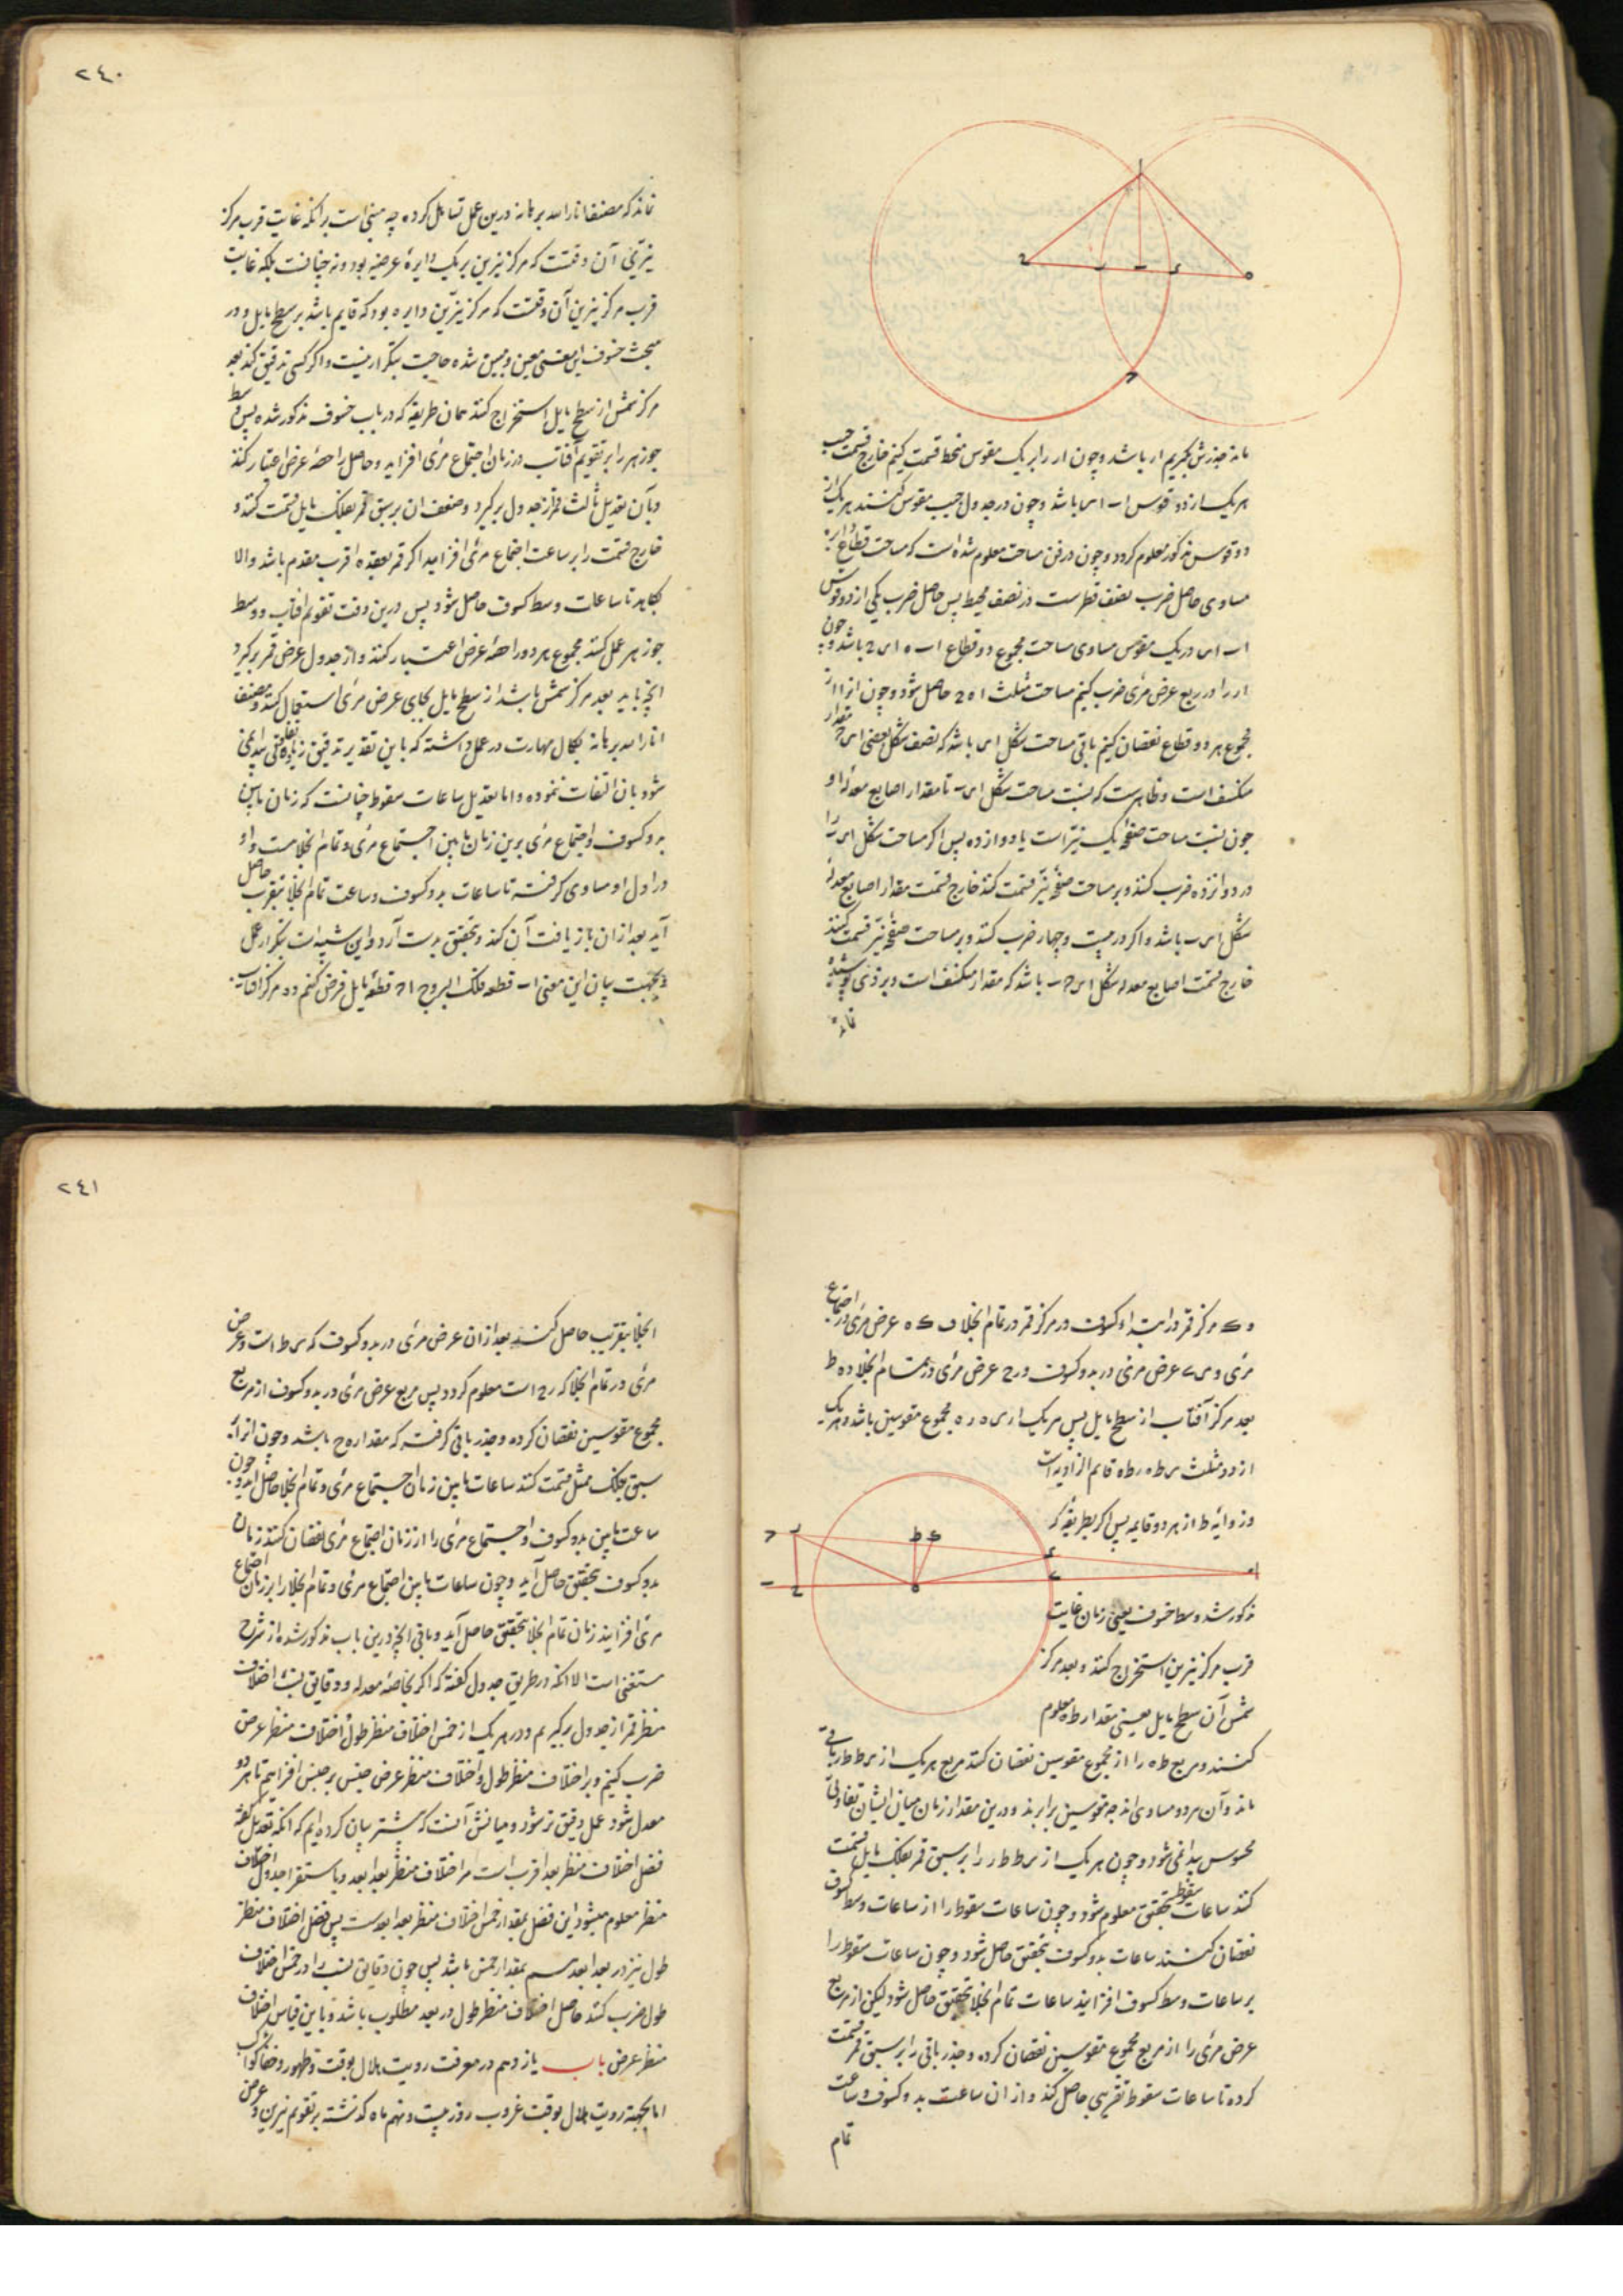 ماند جذرش بگیریم ار باشد و چون ار را بر یک مقوس منحط قسمت کنیم خارج قسمت جیب
هر یک از دو قوس اب اس باشد و چون در جدول جیب مقوس کنند هر یک از
دو قوس مذکور معلوم گردد و چون در فن مساحت معلوم شده است که مساحت قطاع دایره
مساوی حاصل ضرب نصف قطرست در نصف محیط پس حاصل ضرب یکی از دو قوس
اب اس در یک مقوس مساوی مساحت مجموع دو قطاع باشد و چون
ار را در ربع عرض مرئی ضرب کنیم مساحت مثلث حاصل شود و چون انرا از
مجموع هر دو قطاع نقصان کنیم باقی مساحت شکل باشد که نصف شکل یعنی مقدار
منکسف است و ظاهرست که نسبت مساحت شکل تا مقدار اصابع معدله او
چون نسبت مساحت صفحه یک نیر است با دوازده پس اگر مساحت شکل را
در دوازده ضرب کنند و بر مساحت صفحه نیر قسمت کنند خارج قسمت مقدار اصابع معدله
شکل باشد و اگر در بیست و چهار ضرب کنند و بر مساحت صفحه نیر قسمت کنند
خارج قسمت اصابع معدله شکل باشد که مقدار منکسف است و بر ذکی پوشیده
نماند
٢٤٠
نماند که مصنف انار الله برهانه درین عمل تساهل کرده چه مبنی است بر انکه غایت قرب مرکز
نیرین آن وقتست که مرکز نیرین بر یک دایرهٔ عرضیه بود و نه چنانست بلکه غایت
قرب مرکز نیرین آن وقتست که مرکز نیرین دایره بود که قایم باشد بر سطح مایل و در
مبحث خسوف این معنی معین و مبین شده حاجت بتکرار نیست و اگر کسی تدقیق کند بعد
مرکز شمس از سطح مایل استخراج کند بهمان طریقه که در باب خسوف مذکور شده پس وسط
جوزهر را بر تقویم آفتاب در زمان اجتماع مرئی افزاید و حاصل را حصهٔ عرض اعتبار کند
و بآن تعدیل ثالث قمر از جدول برگیرد و ضعف ان بر سبق قمر بفلک مایل قسمت کند و
خارج قسمت را بر ساعت اجتماع مرئی افزاید اگر قمر بعقده اقرب مقدم باشد و الا
بکاهد تا ساعات وسط کسوف حاصل شود پس درین وقت تقویم آفتاب و وسط
جوزهر عمل کند مجموع هر دو را حصهٔ عرض اعتبار کند و از جدول عرض قمر برگیرد
انچه باید بعد مرکز شمس باشد از سطح مایل بجای عرض مرئی استعمال کند و مصنف
انار الله برهانه بکمال مهارت در عمل داشته که باین تقدیر تدقیق زیاده تفاوتی پیدا نمی
شود بان التفات نموده و اما تعدیل ساعات سقوط چنانست که زمان مابین
بدو کسوف و اجتماع مرئی برین زمان مابین اجتماع مرئی و تمام انجلاست و او
در اول او مساوی گرفته تا ساعات بدو کسوف و ساعت تمام انجلا بتقریب حاصل
آید بعد از ان باز یافت آن کند و تحقیق بدست آرد و این شبیه است بتکرار عمل
و بجهت بیان این معنی اب قطعه فلک البروج قطعهٔ مایل فرض کنیم و ه مرکز آفتاب
و ک مرکز قمر در ابتداء کسوف و ر مرکز قمر در تمام انجلا ف ک ه عرض مرئی در اجتماع
مرئی و عرض مرئی در بدو کسوف و رح عرض مرئی در تمام انجلا و ه ط
بعد مرکز آفتاب از سطح مایل پس هر یک از مجموع مقوسین باشد و هر یک
از دو مثلث قایم الزاویه است
و زاویهٔ ط از هر دو قایمه پس اگر بطریقهٔ که
مذکور شد وسط خسوف یعنی زمان غایت
قرب مرکز نیرین استخراج کنند و بعد مرکز
شمس آن سطح مایل یعنی مقدار ط ه معلوم
کنند و مربع ط ه را از مجموع مقوسین نقصان کنند مربع هر یک از باقی
ماند و آن هر دو مساوی اند چه مقوسین برابرند و درین مقدار زمان میان ایشان تفاوتی
محسوس پیدا نمی شود و چون هر یک از را بر سبق قمر بفلک مایل قسمت
کنند ساعات سقوط بتحقیق معلوم شود و چون ساعات سقوط را از ساعات وسط کسوف
نقصان کنند ساعات بدو کسوف بتحقیق حاصل شود و چون ساعات سقوط را
بر ساعات وسط کسوف افزایند ساعات تمام انجلا بتحقیق حاصل شود لیکن از مربع
عرض مرئی را از مربع مجموع مقوسین نقصان کرده و جذر باقی را بر سبق قمر قسمت
کرده تا ساعات سقوط تقریبی حاصل کند و از ان ساعت بدو کسوف و ساعت
تمام
٢٤١
انجلا بتقریب حاصل کنند بعد از ان عرض مرئی در بدو کسوف که است و عرض
مرئی در تمام انجلا که رح است معلوم گردد پس مربع عرض مرئی در بدو کسوف از مربع
مجموع مقوسین نقصان کرده و جذر باقی گرفته که مقدار باشد و چون انرا بر
سبق بفلک ممثل قسمت کند ساعات مابین زمان اجتماع مرئی و تمام انجلا حاصل آید و چون
ساعت مابین بدو کسوف و اجتماع مرئی را از زمان اجتماع مرئی نقصان کنند زمان
بدو کسوف بتحقیق حاصل آید و چون ساعات مابین اجتماع مرئی و تمام انجلا را بر زمان اجتماع
مرئی افزایند زمان تمام انجلا بتحقیق حاصل آید و باقی انچه درین باب مذکور شده از شرح
مستغنی است الا انکه در طریق جدول گفته که اگر بخاصهٔ معدله و دقایق نسبت اختلاف
منظر قمر از جدول برگیریم و در هر یک از خمس اختلاف منظر طول و اختلاف منظر عرض
ضرب کنیم و بر اختلاف منظر طول و اختلاف منظر عرض جنس بر جنس افزاییم تا هر دو
معدل شود عمل دقیق تر شود و بیانش آنست که پیشتر بیان کرده ایم که انکه تعدیل گفته
فضل اختلاف منظر بعد اقرب است مر اختلاف منظر بعد ابعد و باستقرا جدول اختلاف
منظر معلوم میشود این فضل بمقدار خمس اختلاف منظر بعد ابعدست پس فضل اختلاف منظر
طول نیز در بعد ابعد هم بمقدار خمس باشد پس چون دقایق نسبت را در خمس اختلاف
طول ضرب کنند حاصل اختلاف منظر طول در بعد مطلوب باشد و باین قیاس اختلاف
منظر عرض باب یازدهم در معرفت رویت هلال بوقت و ظهور و خفا کواکب
اما بجهته رویت هلال بوقت غروب روز بیست و نهم ماه گذشته بر تقویم نیرین و عرض